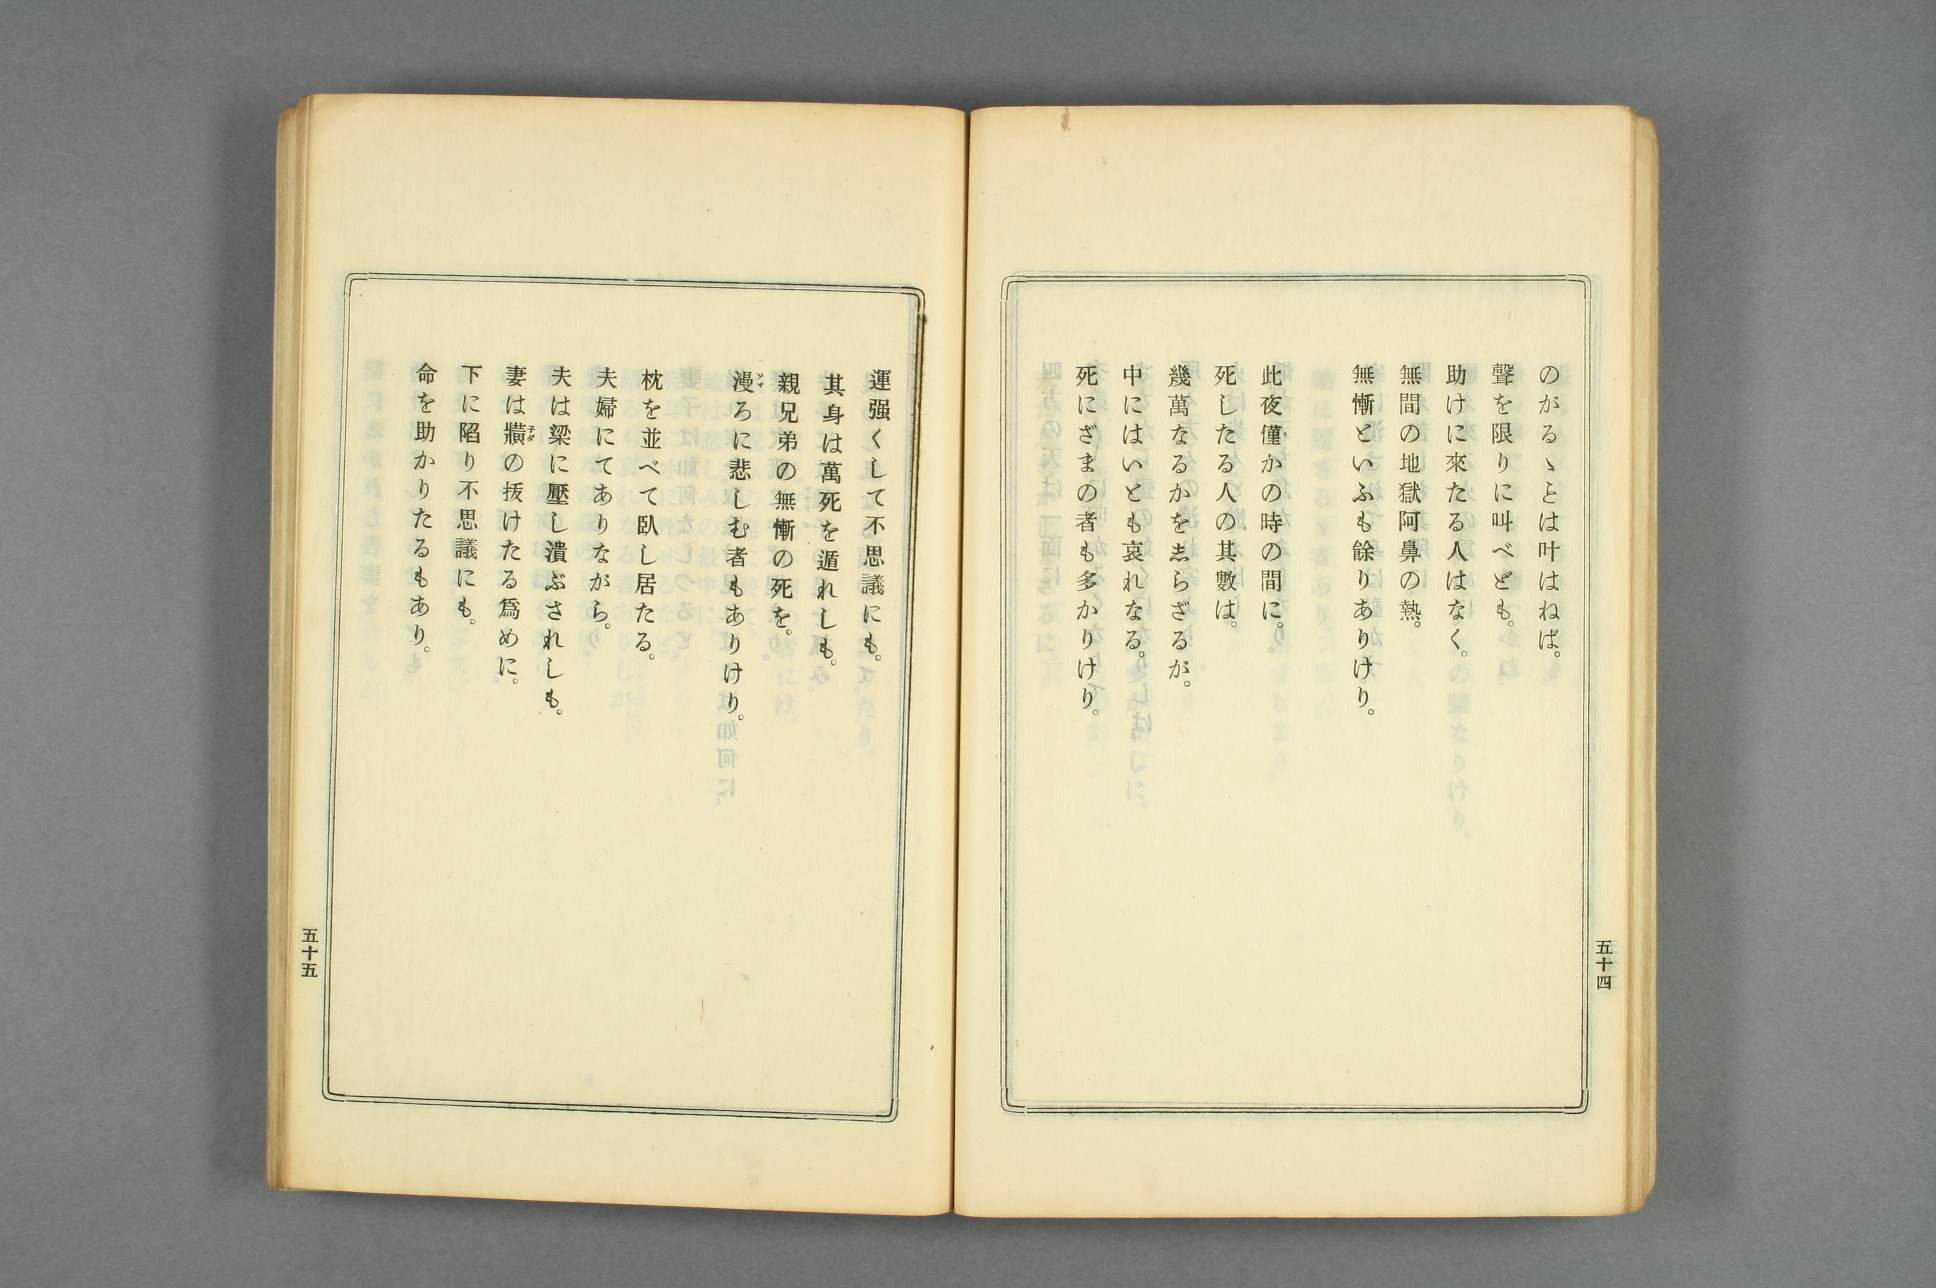 のがるゝとは叶はねば。
聲を限りに叫べども。
助けに來たる人はなく。
無間の地獄阿鼻の熱。
無慚といふも餘りありけり。
此夜僅かの時の間に。
死したる人の其數は。
幾萬なるかを志らざるが。
中にはいとも哀れなる。
死にざまの者も多かりけり。
五十四
運强くして不思議にも。
其身は萬死を遁れしも。
親兄弟の無慚の死を。
漫ろに悲しむ者もありけり。
枕を並べて臥し居たる。
夫婦にてありながら。
夫は梁に壓し潰ぶされしも。
妻は の抜けたる爲めに。
下に陷り不思議にも。
命を助かりたるもあり。
五十五